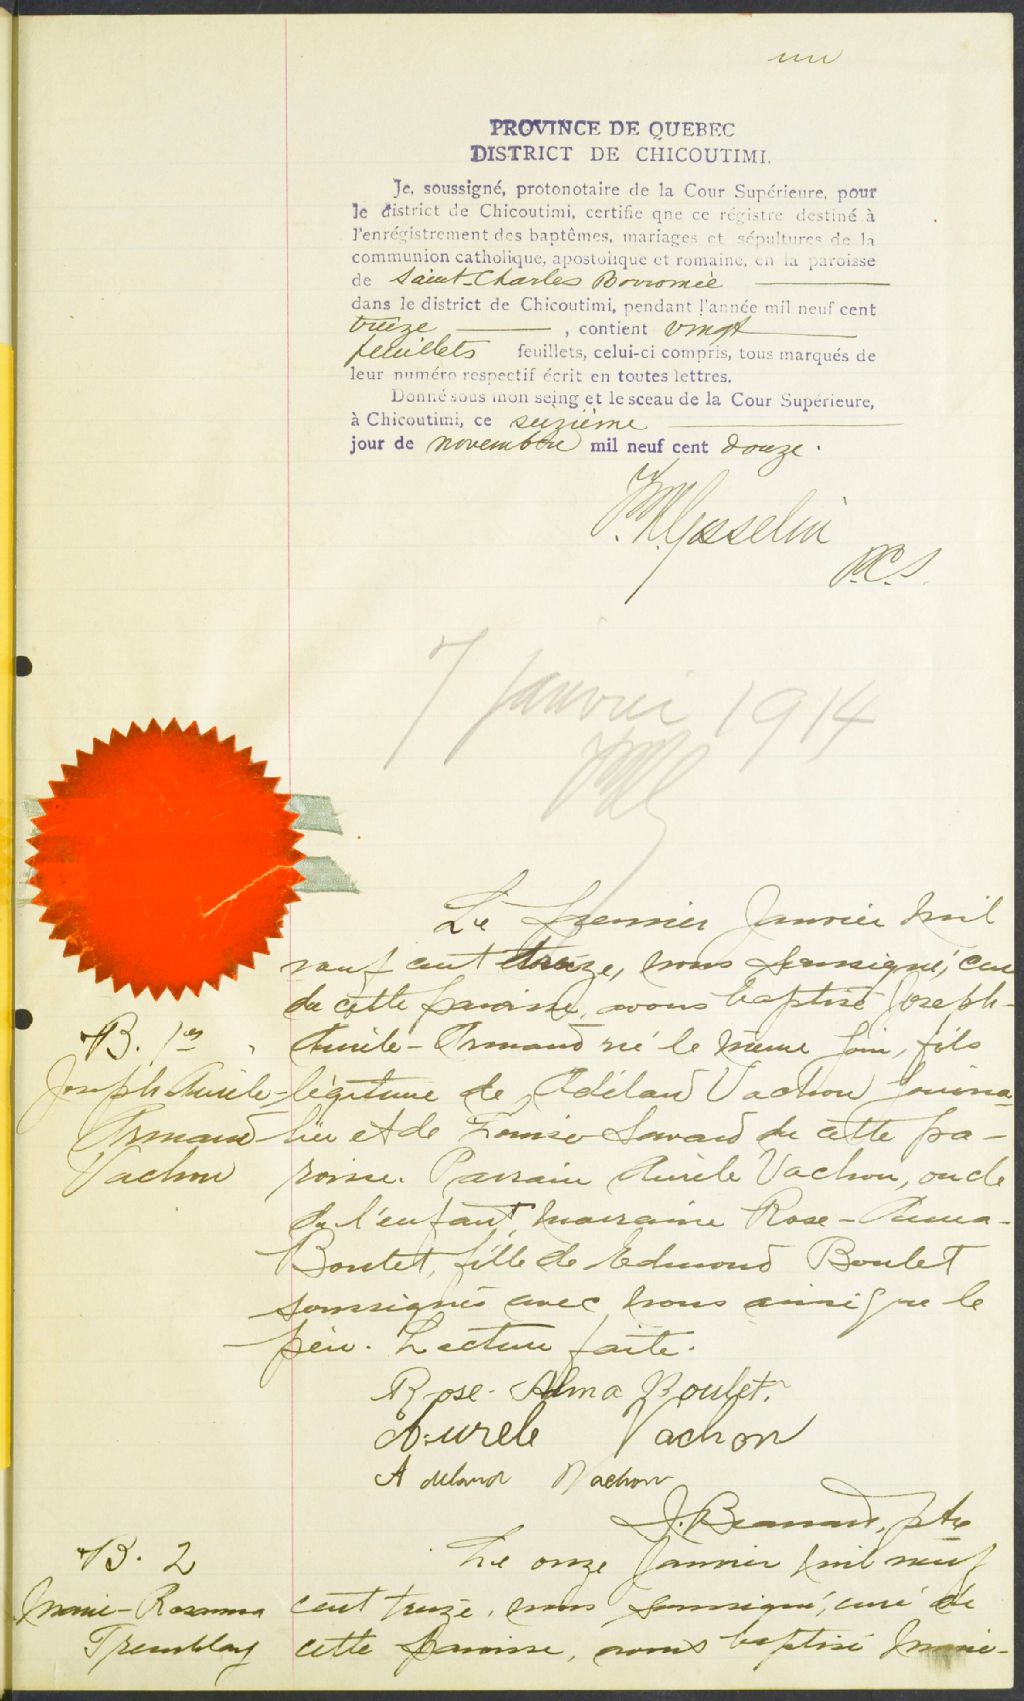 un
PROVINCE DE QUEBEC
DISTRICT DE CHICOUTIMI.
Je, soussigné, protonotaire de la Cour Supérieure, pour
le district de Chicoutimi, certifie qne ce régistre destiné à
l'enrégistrement des baptêmes, mariages et sépultures de la
communion catholique, apostolique et romaine, en la paroisse
de Saint-Charles Borromée
dans le district de Chicoutimi, pendant l'année mil neuf cent
treize , contient vingt
feuillets feuillets, celui-ci compris, tous marqués de
leur numéro respectif écrit en toutes lettres.
Donné sous mon seing et le sceau de la Cour Supérieure,
à Chicoutimi, ce seizième
jour de novembre mil neuf cent douze.
Gosselin
P.C.S.
7 Janvier 1914
Le premier Janvier mil
neuf cent treize, nous soussigné, curé
de cette paroisse, avons baptisé Joseph-
B. 1er
Aurèle-Armand né le même jour, fils
Joseph Aurèle-
légitime de Adélard Vachon journa-
Armand
lier et de Louise Savard de cette pa-
Vachon
roisse. Parrain Aurèle Vachon, oncle
de l'enfant, marraine Rose-Anna-
Boulet, fille de Edmond Boulet
soussignés avec nous ainsi que le
père. Lecture faite.
Rose-Alma Boulet.
Aurele Vachon
Adelard Vachon
J. ptre
B. 2
Le onze Janvier mil neuf
Marie-Rosanna
cent treize, nous soussigné, curé de
Tremblay
cette paroisse, avons baptisé Marie-